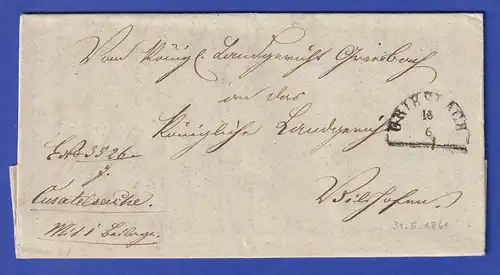 Vom Königl. Landgericht Griesbach
an das
Königliche Landgericht
GRIESBACH
18
6
Ex№ 3526
Curatelsache.
Mit 1 Beilage.
Vilshofen.
31.5.1861